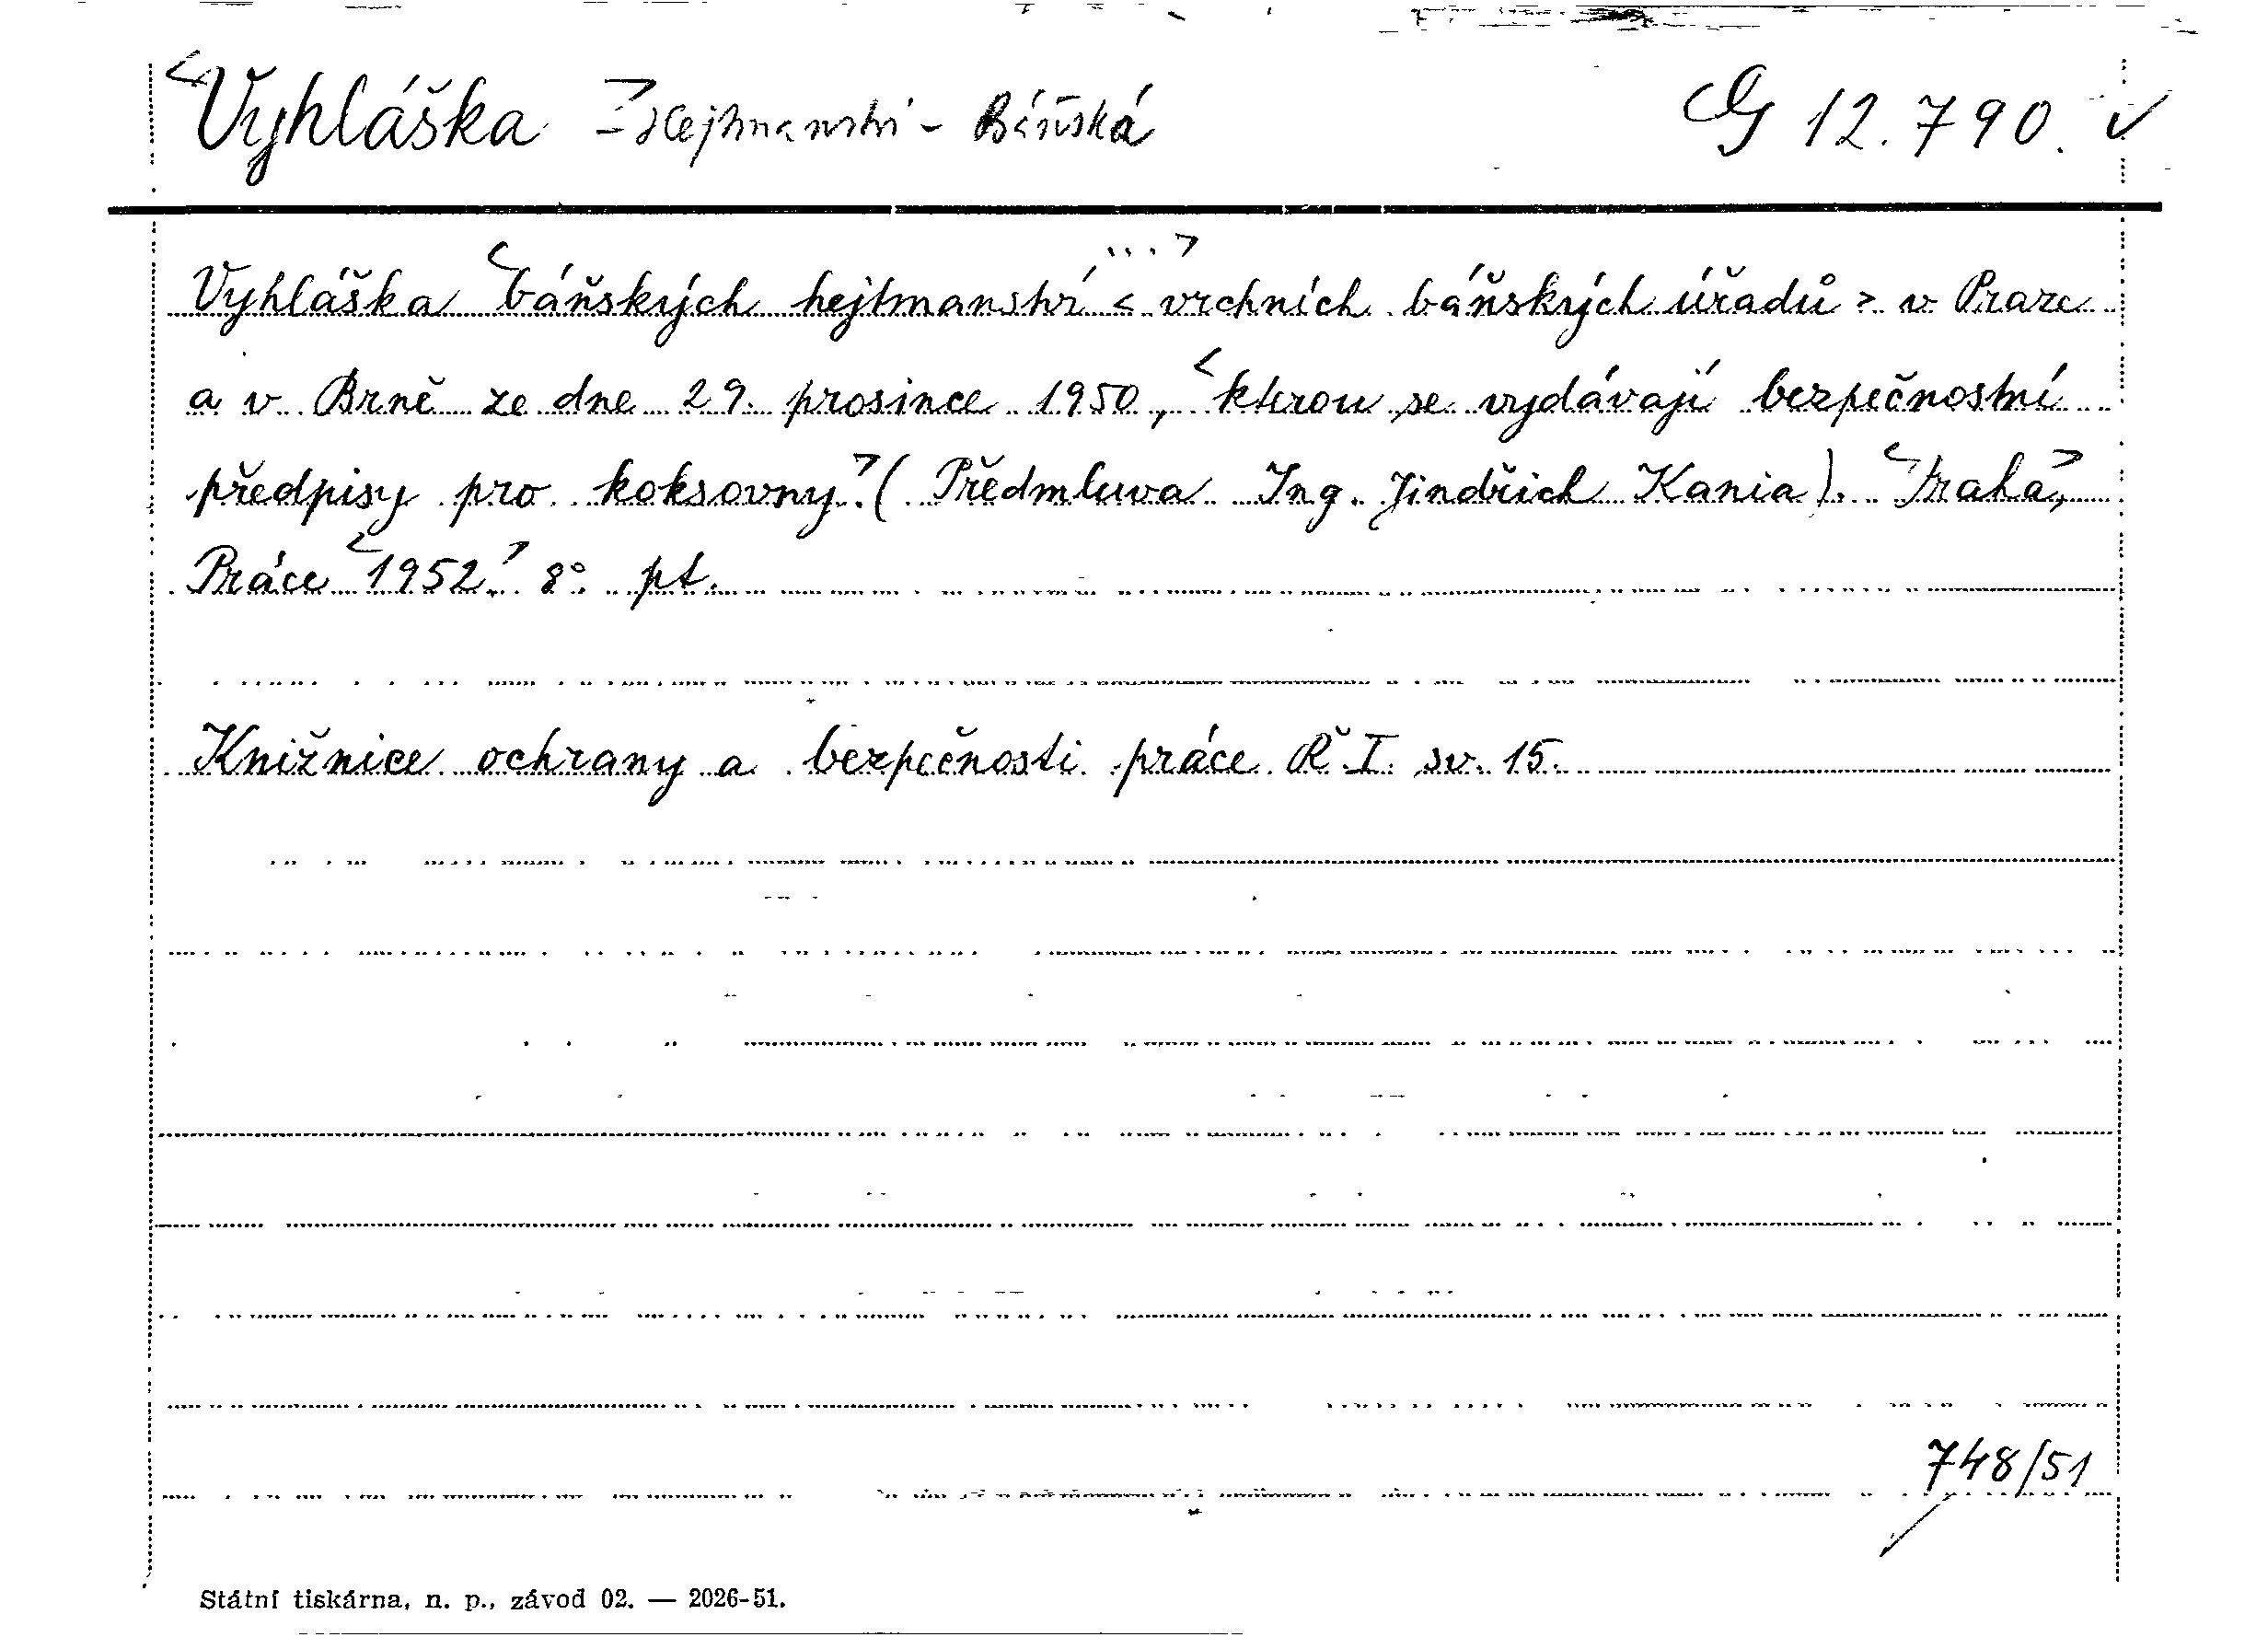 <Vyhláška> = Hejtmanství - Báňská G 12.790. ✓
Vyhláška <báňských hejtmanství ...> <vrchních báňských úřadů> v Praze
a v Brně ze dne 29. prosince 1950, <kterou se vydávají bezpečnostní
předpisy pro koksovny.> (Předmluva Ing. Jindřich Kania). <Praha,>
Práce <1952.> 8° pt.
Knižnice ochrany a bezpečnosti práce Ř. I. sv. 15.
748/51
Státní tiskárna, n. p., závod 02. — 2026-51.